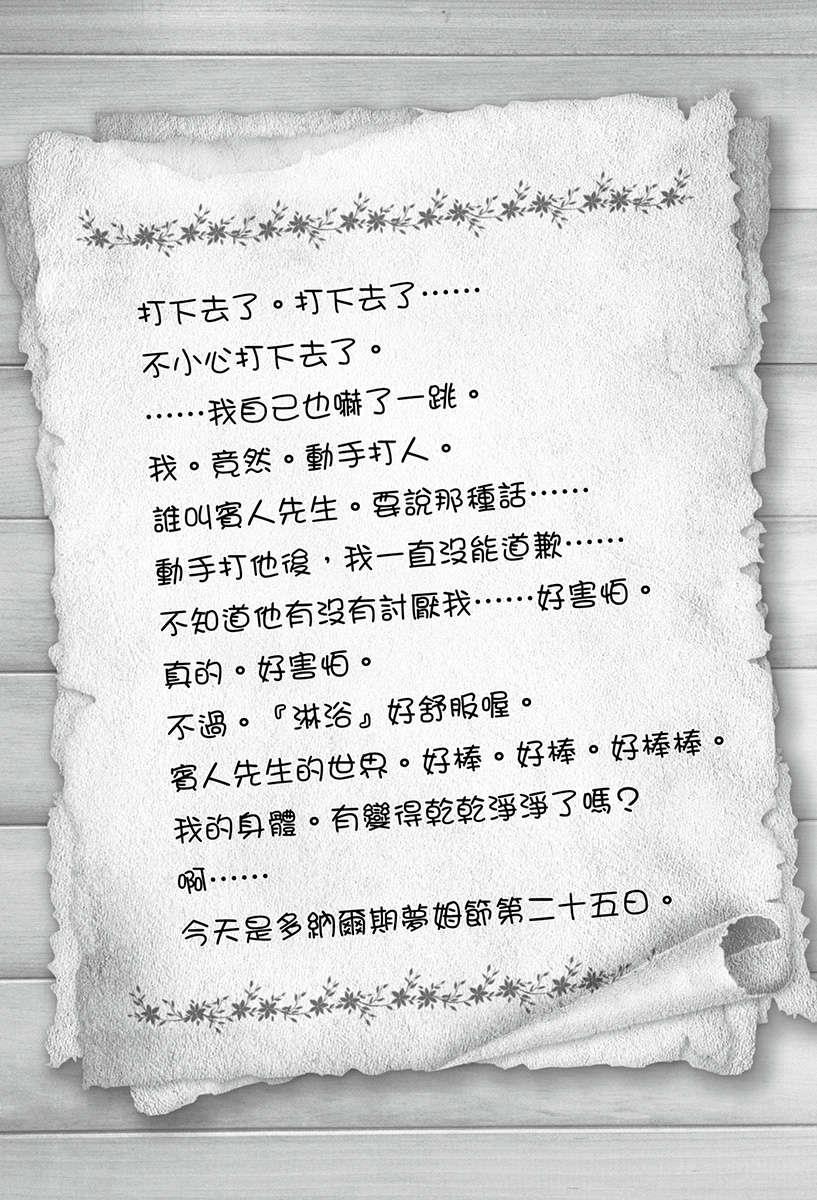 打下去了。打下去了……
不小心打下去了。
……我自己也嚇了一跳。
我。竟然。動手打人。
誰叫賓人先生。要說那種話……
動手打他後，我一直沒能道歉……
不知道他有沒有討厭我……好害怕。
真的。好害怕。
不過。『淋浴』好舒服喔。
賓人先生的世界。好棒。好棒。好棒棒。
我的身體。有變得乾乾淨淨了嗎？
啊……
今天是多納爾期夢姆節第二十五日。